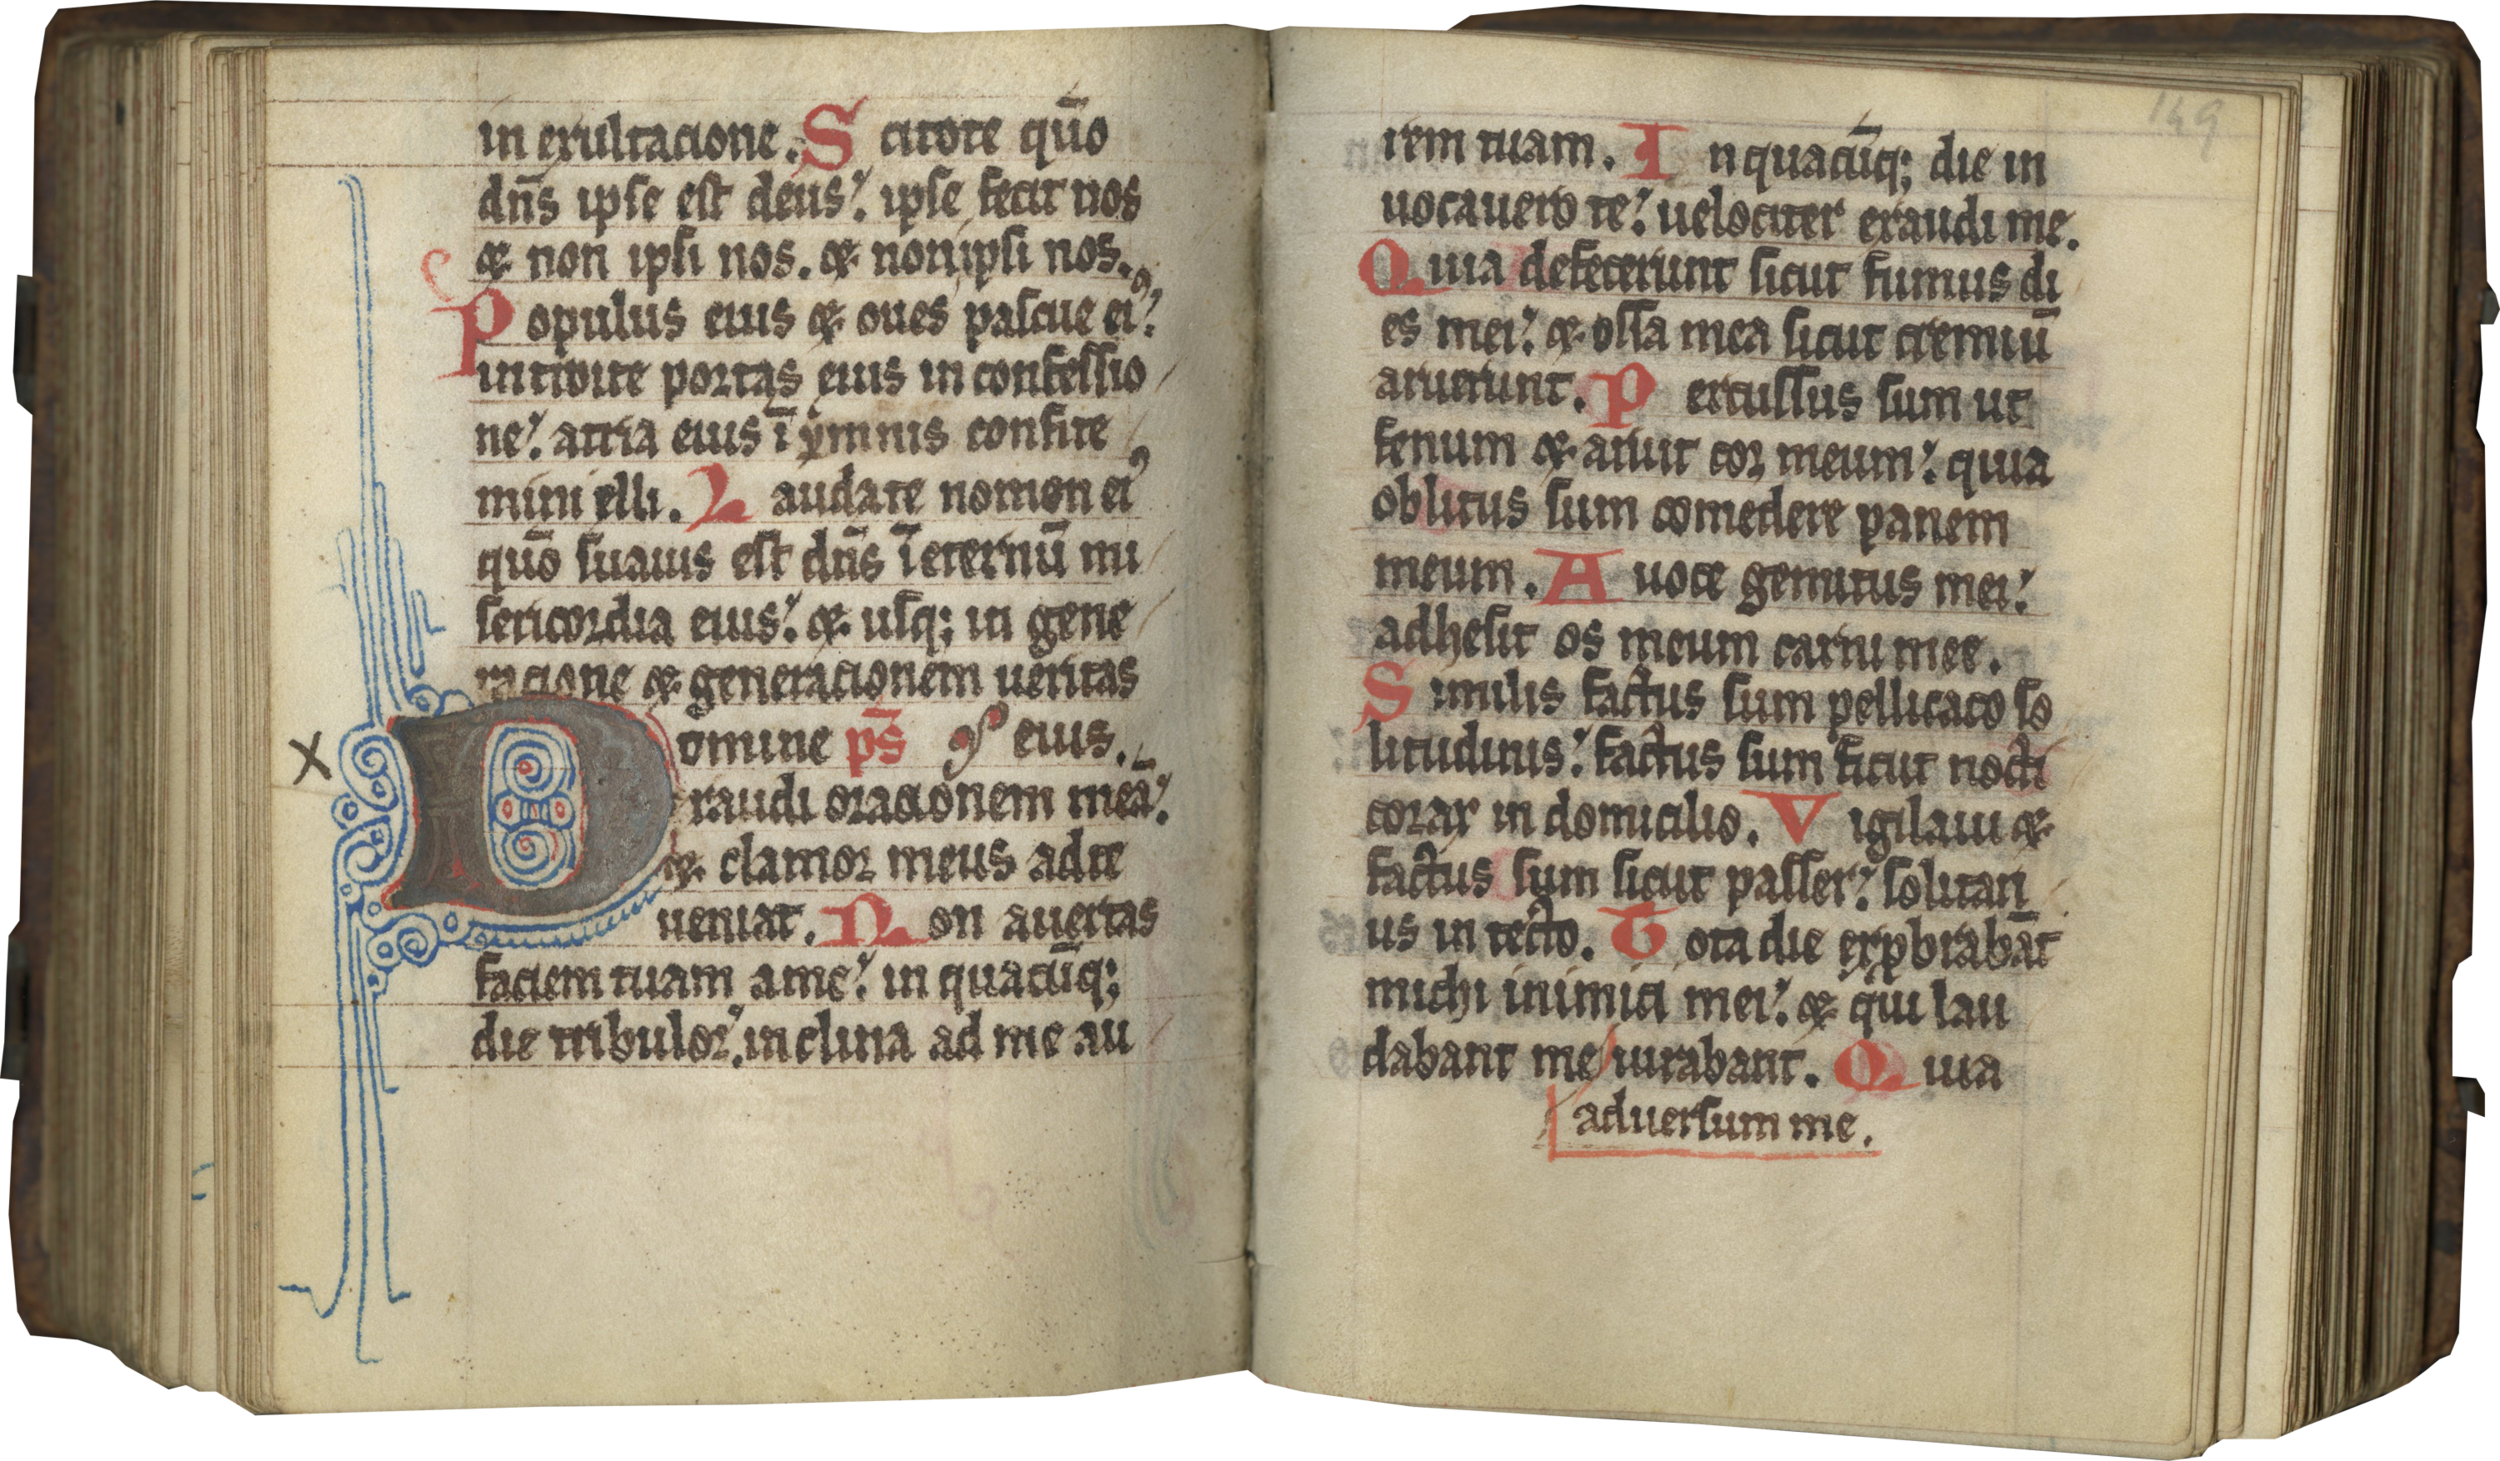 in exultacione. S citote quō
dn̄s ipse est deus: ipse fecit nos
⁊ non ipsi nos. ⁊ non ipsi nos.
P opulus eius ⁊ oues pascue eiꝰ:
introite portas eius in confessio
ne: atria eius ī ymnis confite
mini illi. L audate nomen eiꝰ
quō suauis est dn̄s ī eternū mi
sericordia eius: ⁊ usq; in gene
racione ⁊ generacionem ueritas
D omine ps̄ eius.
exaudi oracionem meā:
⁊ clamor meus ad te
ueniat. N on auertas
faciem tuam a me: in quacūq;
die tribulor, inclina ad me au
X
149
rem tuam. I n quacūq; die in
uocauero te: uelociter exaudi me.
Q uia defecerunt sicut fumus di
es mei: ⁊ ossa mea sicut cremiū
aruerunt. P ercussus sum ut
fenum ⁊ aruit cor meum: quia
oblitus sum comedere panem
meum. A uoce gemitus mei:
adhesit os meum carni mee.
S imilis factus sum pellicano so
litudinis: factus sum sicut nocti
corax in domicilio. V igilaui ⁊
factus sum sicut passer: solitari
us in tecto. T ota die exprobrabāt
michi inimici mei: ⁊ qui lau
dabant me iurabant. Q uia
aduersum me.